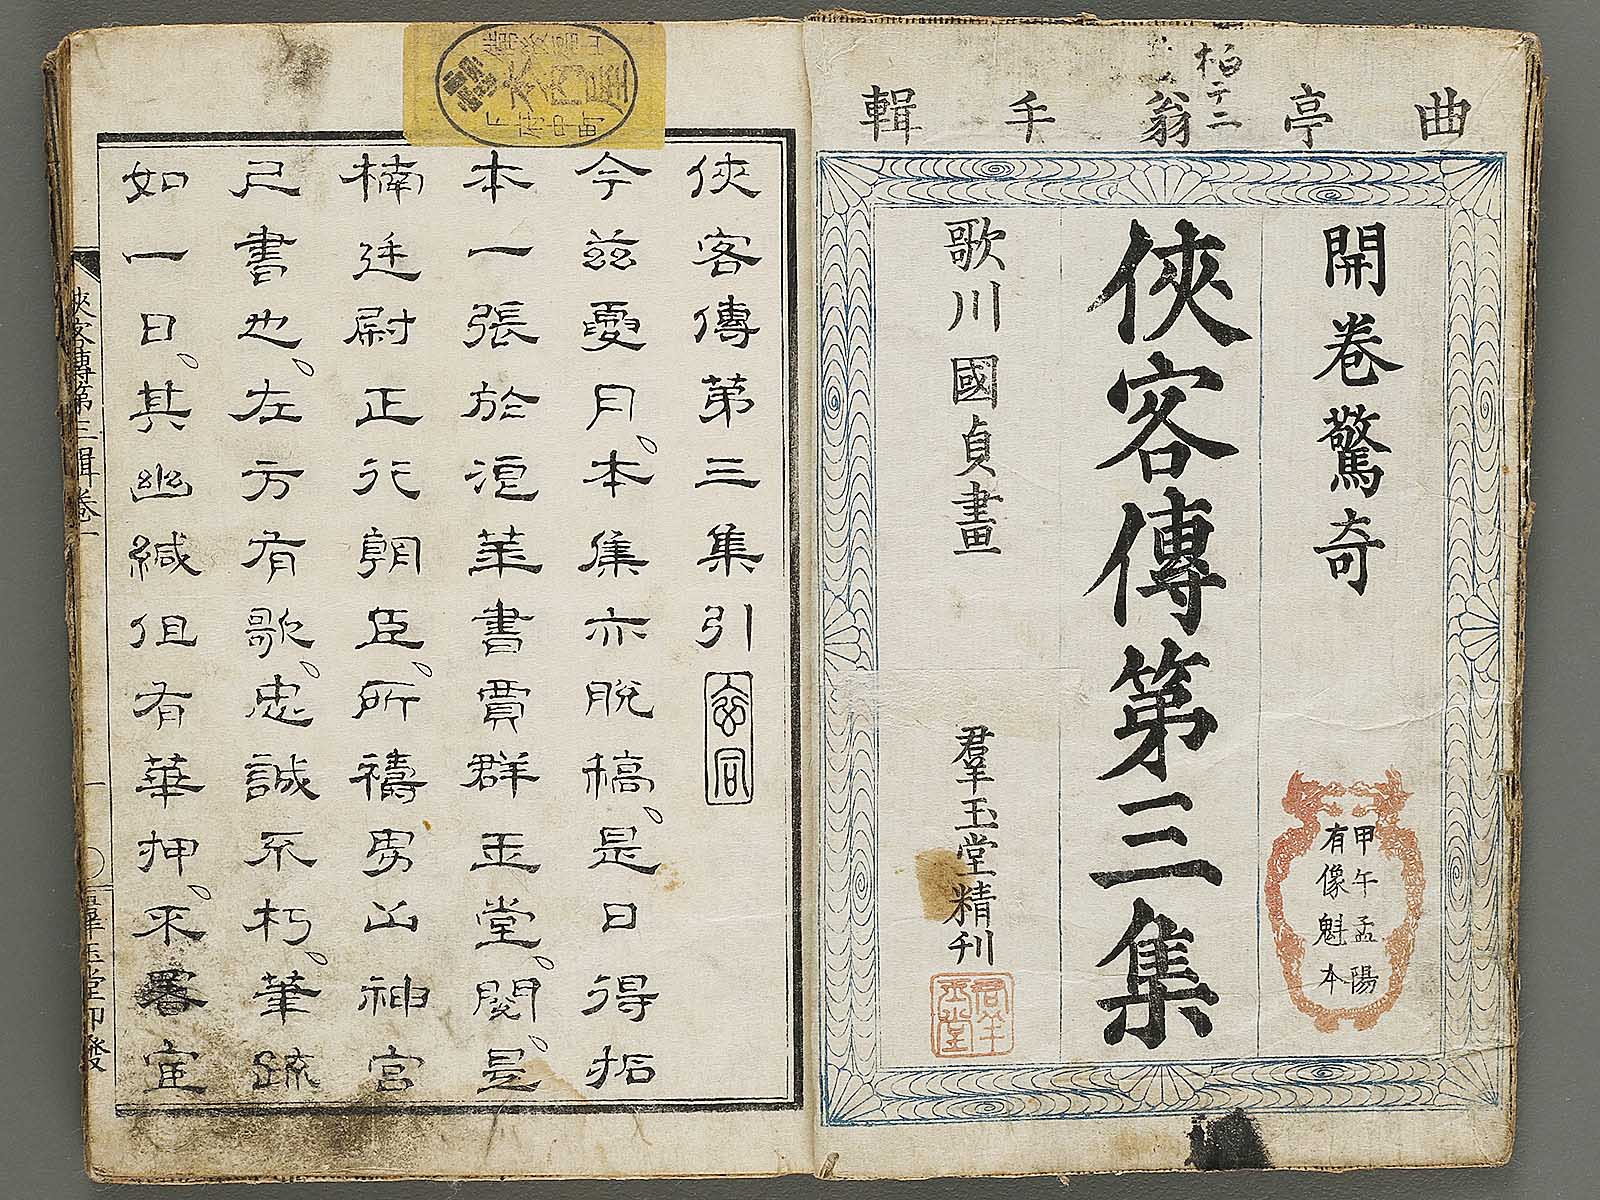 曲亭翁手輯
開卷驚奇
俠客傳第三集
歌川國貞畫
羣玉堂精刊
甲午孟陽
有像魁本
俠客傳第三集引
今茲憂月本集亦脫稿是日得拓
本一張於浪華書賈群玉堂閱是
楠廷尉正行朝臣所禱男山神宮
己書也左方有歌忠誠不朽筆跡
如一日其幽緘但有華押不署
俠客傳第三輯卷一
一
羣玉堂印發